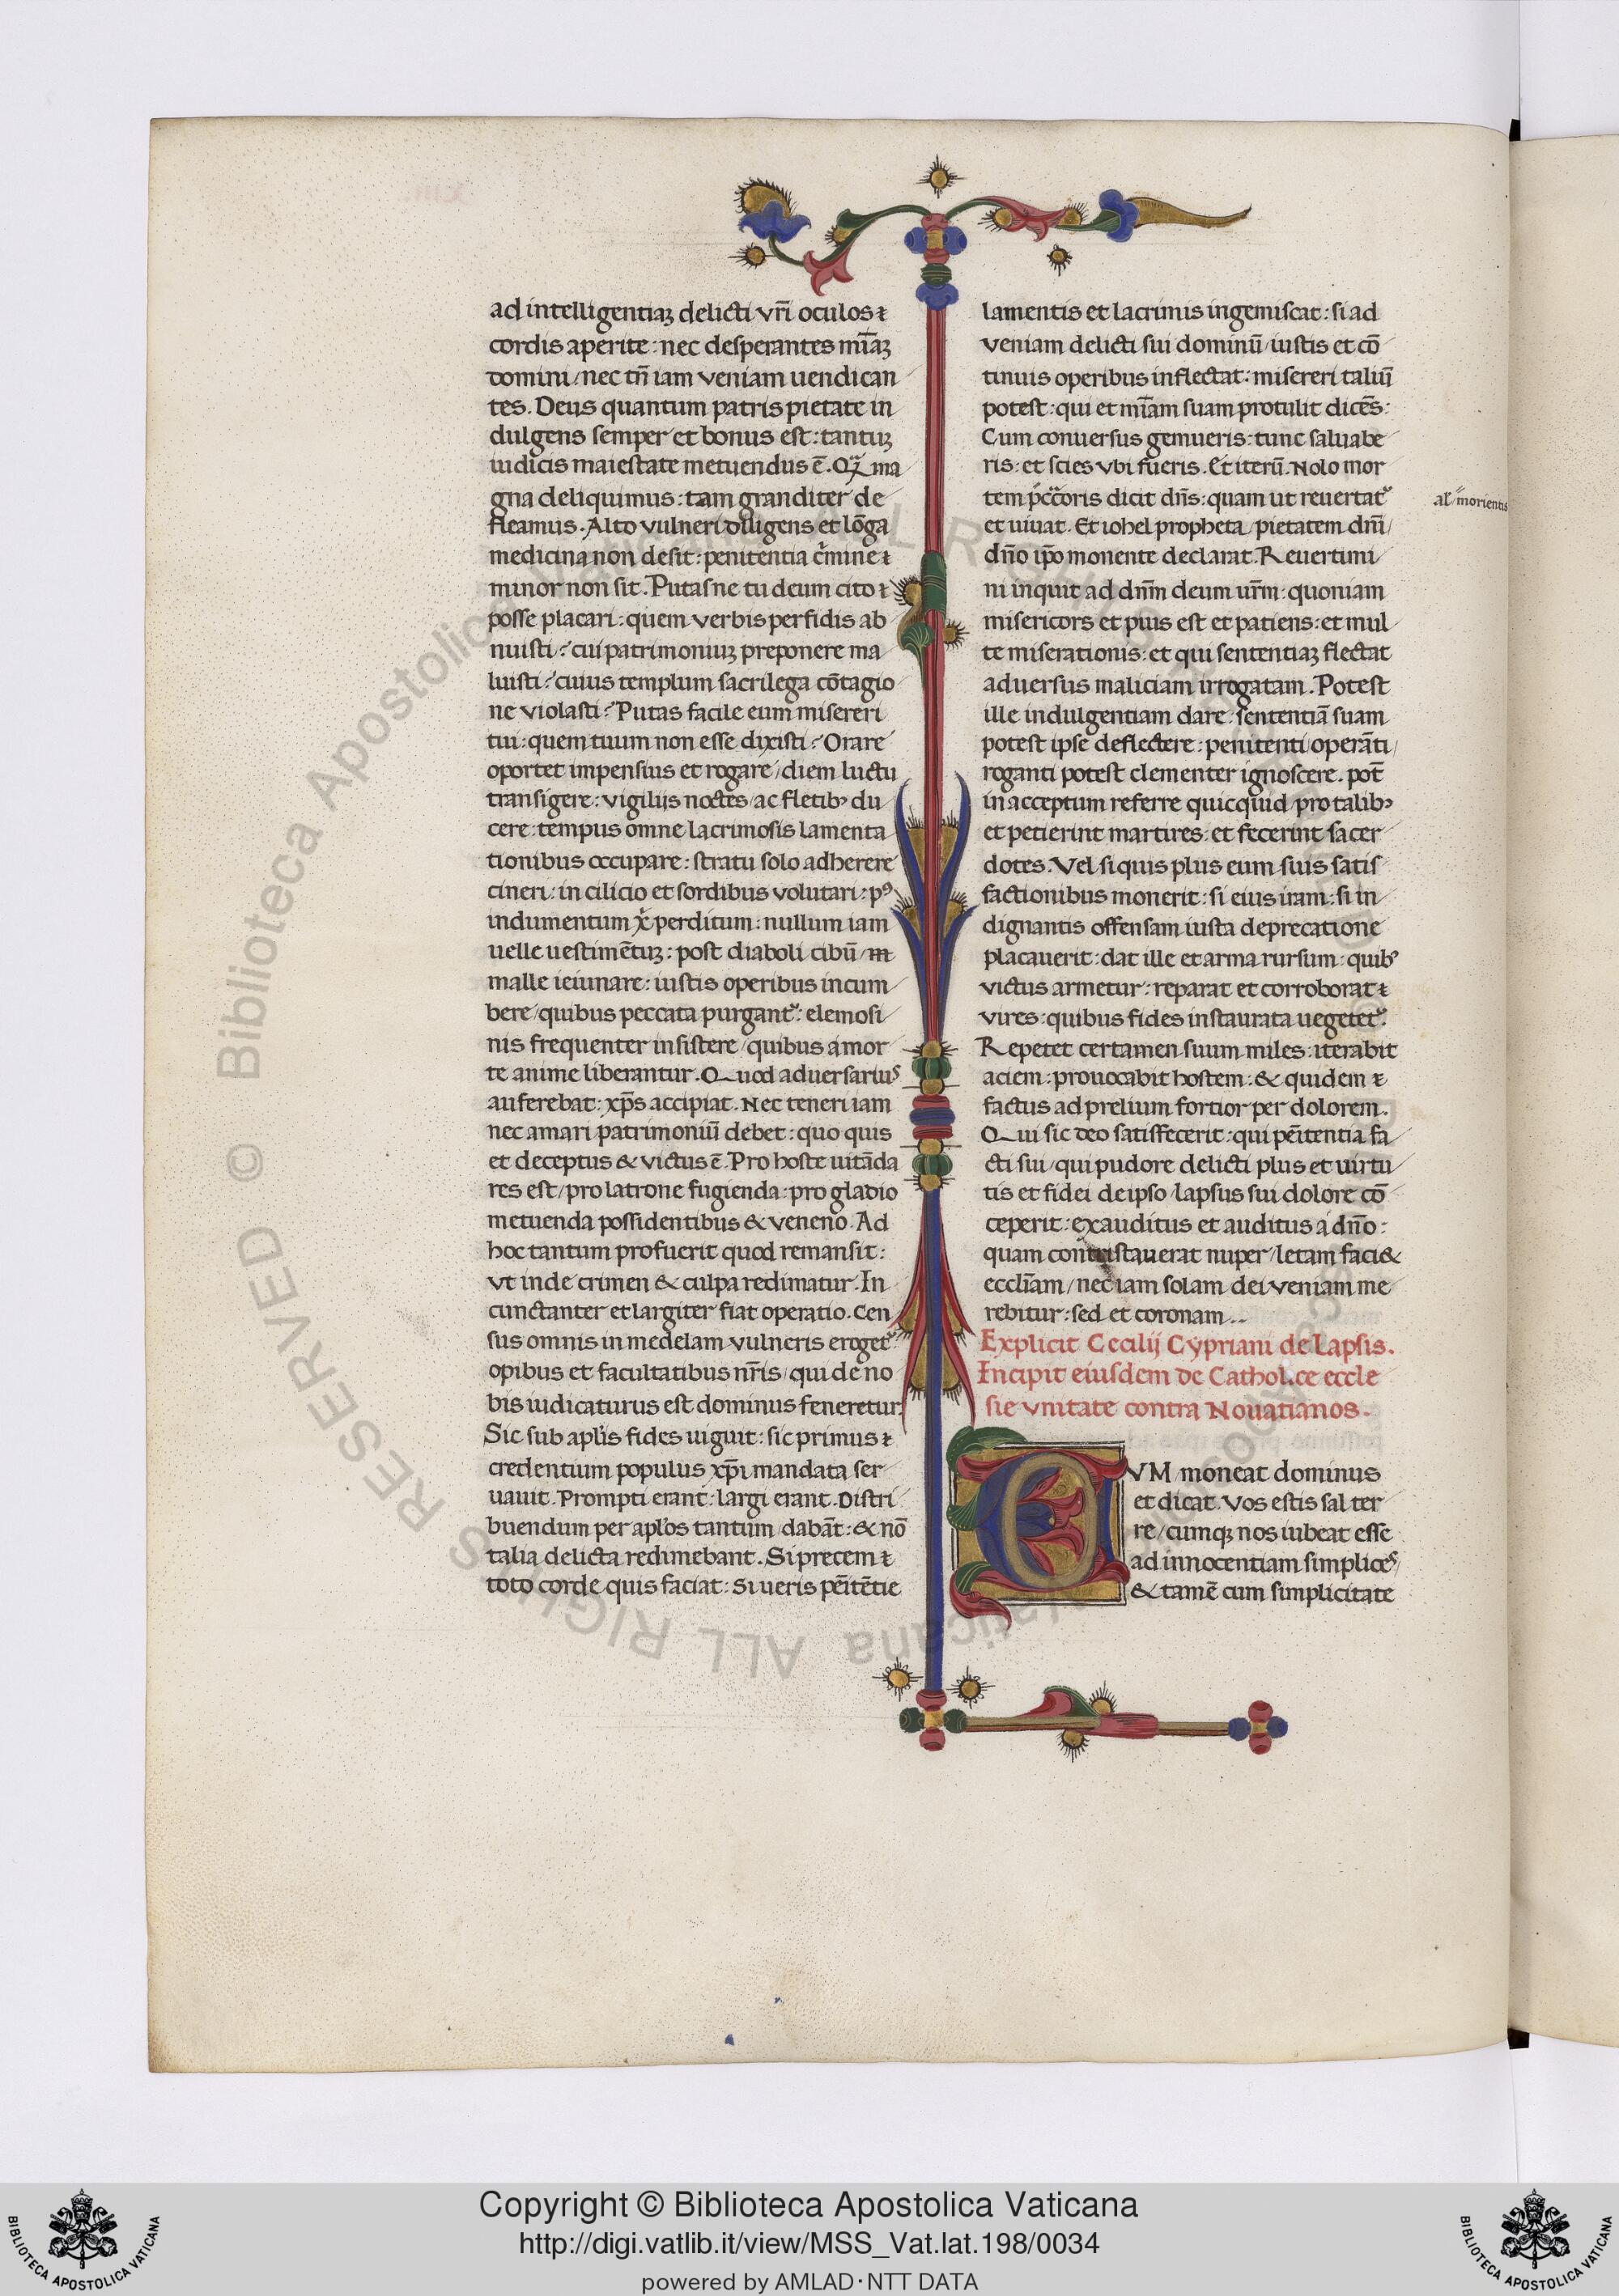 ad intelligentiaꝫ delicti vr̃i oculos
cordis aperite: nec desperantes mĩaꝫ
domini/nec tñ iam veniam uendican
tes. Deus quantum patris pietate in
dulgens semper et bonus est: tantuꝫ
iudicis maiestate metuendus ē. Qͣꝫ ma
gna deliquimus: tam granditer de
fleamus. Alto vulneri diligens et lōga
medicina non desit: penitentia cͥmine
minor non sit. Putasne tu deum cito
posse placari: quem verbis perfidis ab
nuisti? cui patrimoniuꝫ preponere ma
luisti? cuius templum sacrilega cōtagio
ne violasti? Putas facile eum misereri
tui: quem tuum non esse dixisti? Orare
oportet impensius et rogare/diem luctu
transigere: vigilijs noctes/ac fletibꝰ du
cere: tempus omne lacrimosis lamenta
tionibus occupare: stratu solo adherere
cineri: in cilicio et sordibus volutari: pꝰ
indumentum xͥ perditum: nullum iam
uelle uestimētuꝫ: post diaboli cibū
malle ieiunare: iustis operibus incum
bere/quibus peccata purgantᷣ: elemosi
nis frequenter insistere/quibus a mor
te anime liberantur. Quod aduersarius
auferebat: xp̄s accipiat. Nec teneri iam
nec amari patrimoniū debet: quo quis
et deceptus & victus ē. Pro hoste uitāda
res est/pro latrone fugienda: pro gladio
metuenda possidentibus & veneno. Ad
hoc tantum profuerit quod remansit:
vt inde crimen & culpa redimatur. In
cunctanter et largiter fiat operatio. Cen
sus omnis in medelam vulneris erogetᷣ
opibus et facultatibus nr̃is/qui de no
bis iudicaturus est dominus feneretur.
Sic sub apl̃is fides uiguit: sic primus
credentium populus xp̄i mandata ser
uauit. Prompti erant: largi erant. Distri
buendum per apl̃os tantum/dabāt: & nō
talia delicta redimebant. Si precem
toto corde quis faciat: Si ueris pēitētie
lamentis et lacrimis ingemiscat: si ad
veniam delicti sui dominū/iustis et cō
tinuis operibus inflectat: misereri taliū
potest: qui et mĩam suam protulit dicēs:
Cum conuersus gemueris: tunc saluabe
ris: et scies vbi fueris. Et iterū. Nolo mor
tem pccͨoris dicit dñs: quam ut reuertatᷣ
al' morientis
et uiuat. Et iohel propheta/pietatem dñi/
dño ip̃o monente declarat. Reuertimi
ni inquit ad dñm deum ur̃m: quoniam
misericors et pius est et patiens: et mul
te miserationis: et qui sententiaꝫ flectat
aduersus maliciam irrogatam. Potest
ille indulgentiam dare: sententiā suam
potest ipse deflectere: penitenti/operāti/
roganti potest clementer ignoscere. pot̃
in acceptum referre quicquid/pro talibꝰ
et petierint martires: et fecerint sacer
dotes. Vel si quis plus eum suis satis
factionibus monerit: si eius iram: si in
dignantis offensam iusta deprecatione
placauerit: dat ille et arma rursum: quibꝰ
victus armetur: reparat et corroborat
vires: quibus fides instaurata uegetetᷣ.
Repetet certamen suum miles: iterabit
aciem: prouocabit hostem: & quidem
factus ad prelium fortior per dolorem.
Qui sic deo satisfecerit: qui pēitentia fa
cti sui/qui pudore delicti plus et uirtu
tis et fidei de ipso/lapsus sui dolore cō
ceperit: exauditus et auditus a dño:
quam contristauerat nuper/letam faci&
eccl̃iam/nec iam solam dei veniam me
rebitur: sed et coronam..
Explicit Cecilij Cypriani de Lapsis.
Incipit eiusdem de Catholice eccle
sie vnitate contra Nouatianos.
CVM moneat dominus
et dicat. vos estis sal ter
re/cumqꝫ nos iubeat esse
ad innocentiam simplices/
& tamē cum simplicitate
© Biblioteca Apostolica Vaticana ALL RIGHTS RESERVED
Copyright © Biblioteca Apostolica Vaticana
http://digi.vatlib.it/view/MSS_Vat.lat.198/0034
powered by AMLAD·NTT DATA
BIBLIOTECA APOSTOLICA VATICANA
BIBLIOTECA APOSTOLICA VATICANA